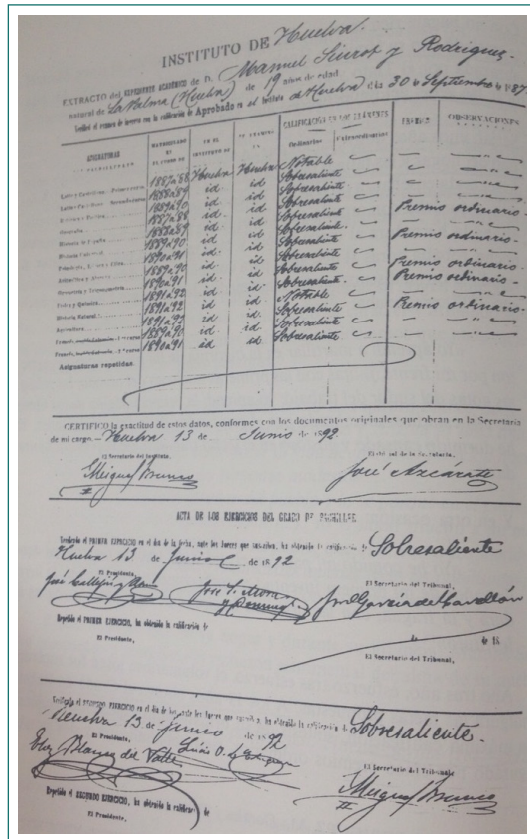 INSTITUTO DE Huelva.
EXTRACTO del EXPEDIENTE ACADÉMICO de D. Manuel Siurot y Rodriguez.
natural de La Palma (Huelva) de 19 años de edad
Verificó el examen de ingreso con la calificación de Aprobado en el Instituto de Huelva día 30 de Septiembre de 1887
ASIGNATURAS MATRICULADO EN EL CURSO DE EN EL INSTITUTO DE SE EXAMINÓ EN CALIFICACIÓN EN LOS EXÁMENES PREMIOS OBSERVACIONES
Ordinarios Extraordinarios
Latín y Castellano 1887 a 88 Huelva Huelva Notable
Latín y Castellano 1888 a 89 id id Sobresaliente
1889 a 90 id id Sobresaliente
Geografía 1887 a 88 id id Sobresaliente Premio ordinario
Historia de España 1888 a 89 id id Sobresaliente
Historia Universal 1889 a 90 id id Sobresaliente Premio ordinario
1890 a 91 id id Sobresaliente
Aritmética y Álgebra 1889 a 90 id id Sobresaliente Premio ordinario
Geometría y Trigonometría 1890 a 91 id id Sobresaliente Premio ordinario
Física y Química 1891 a 92 id id Notable
Historia Natural 1891 a 92 id id Sobresaliente Premio ordinario
Agricultura 1891 a 92 id id Sobresaliente
Francés 1.er curso 1889 a 90 id id Sobresaliente
Francés 2.º curso 1890 a 91 id id Sobresaliente
Asignaturas repetidas
CERTIFICO la exactitud de estos datos, conformes con los documentos originales que obran en la Secretaría
de mi cargo.—Huelva 13 de Junio de 1892
El Secretario del Instituto, El oficial de la Secretaría,
José Azcárate
ACTA DE LOS EJERCICIOS DEL GRADO DE BACHILLER
Verificado el PRIMER EJERCICIO en el día de la fecha, ante los Jueces que suscriben, ha obtenido la calificación de Sobresaliente
Huelva 13 de Junio de 1892
El Presidente, El Secretario del Tribunal,
Repetido el PRIMER EJERCICIO, ha obtenido la calificación de
de 18
El Presidente, El Secretario del Tribunal,
Verificado el SEGUNDO EJERCICIO en el día de hoy, ante los Jueces que suscriben, ha obtenido la calificación de Sobresaliente.
Huelva 13 de Junio de 1892
El Presidente, El Secretario del Tribunal
Repetido el SEGUNDO EJERCICIO, ha obtenido la calificación de
El Presidente,